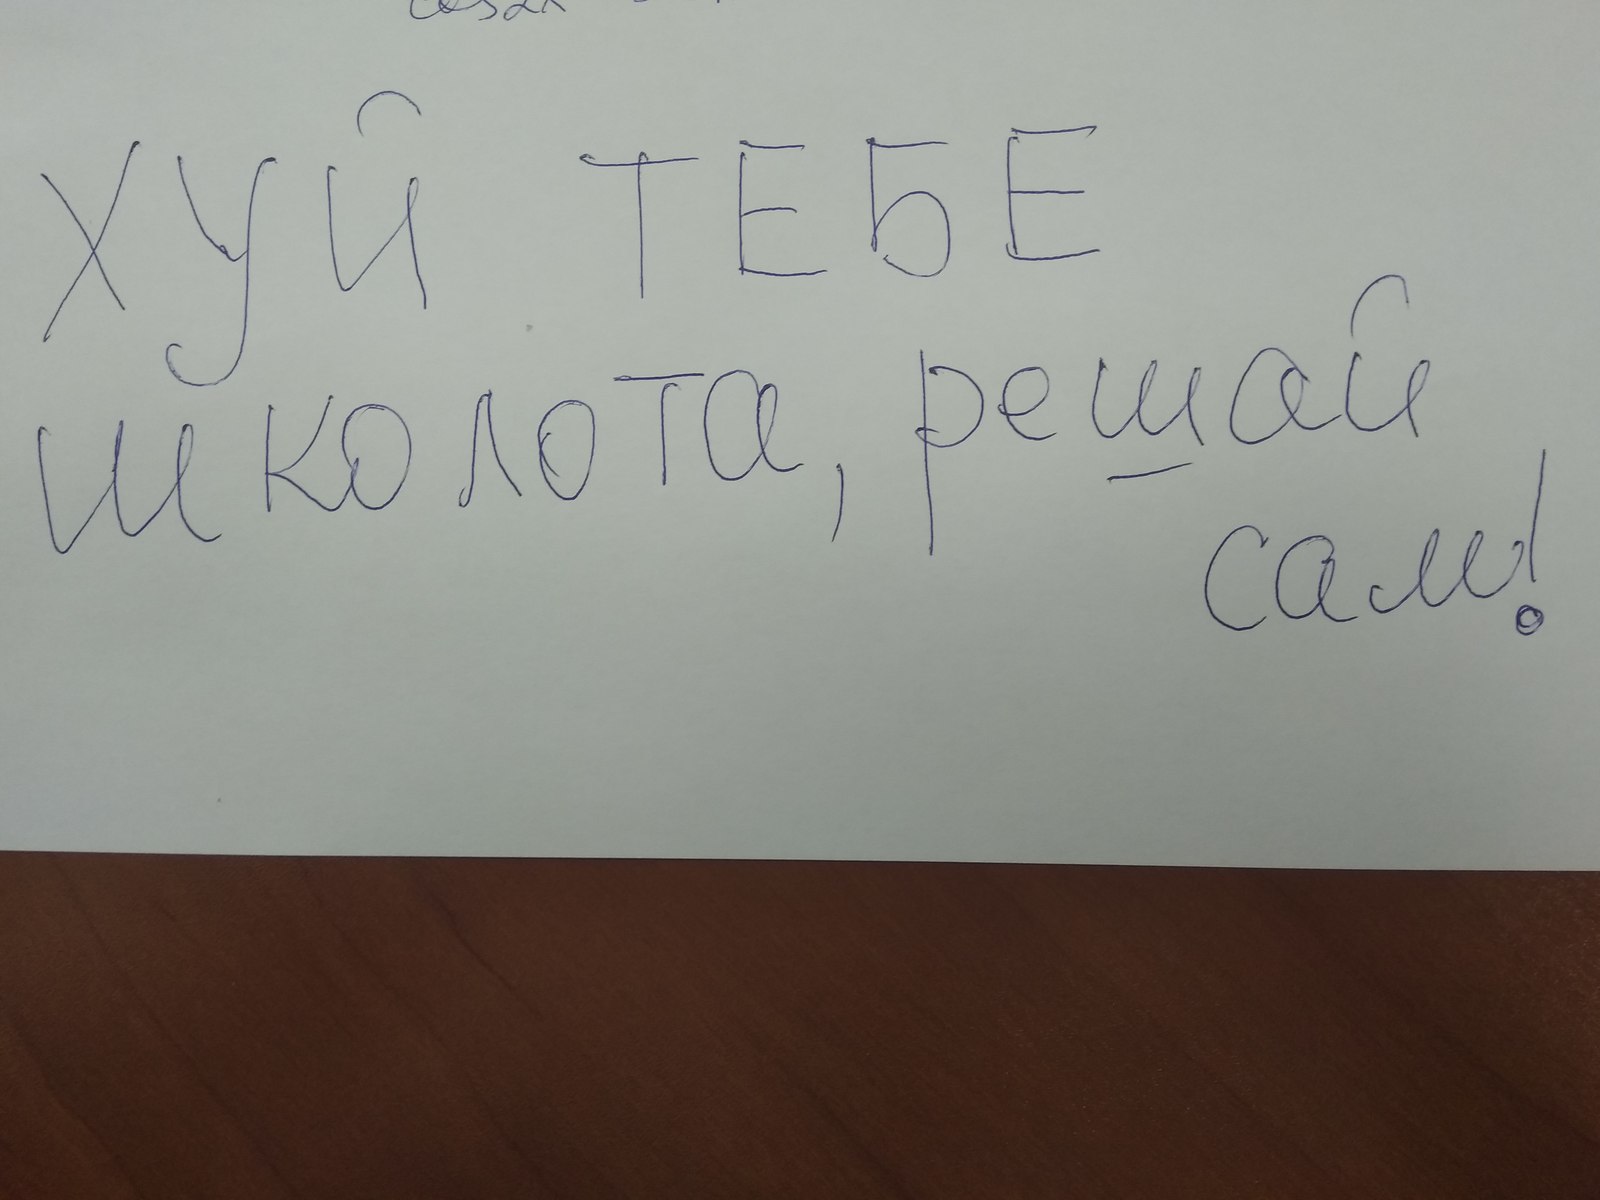 ХУЙ ТЕБЕ
школота, решай
сам!